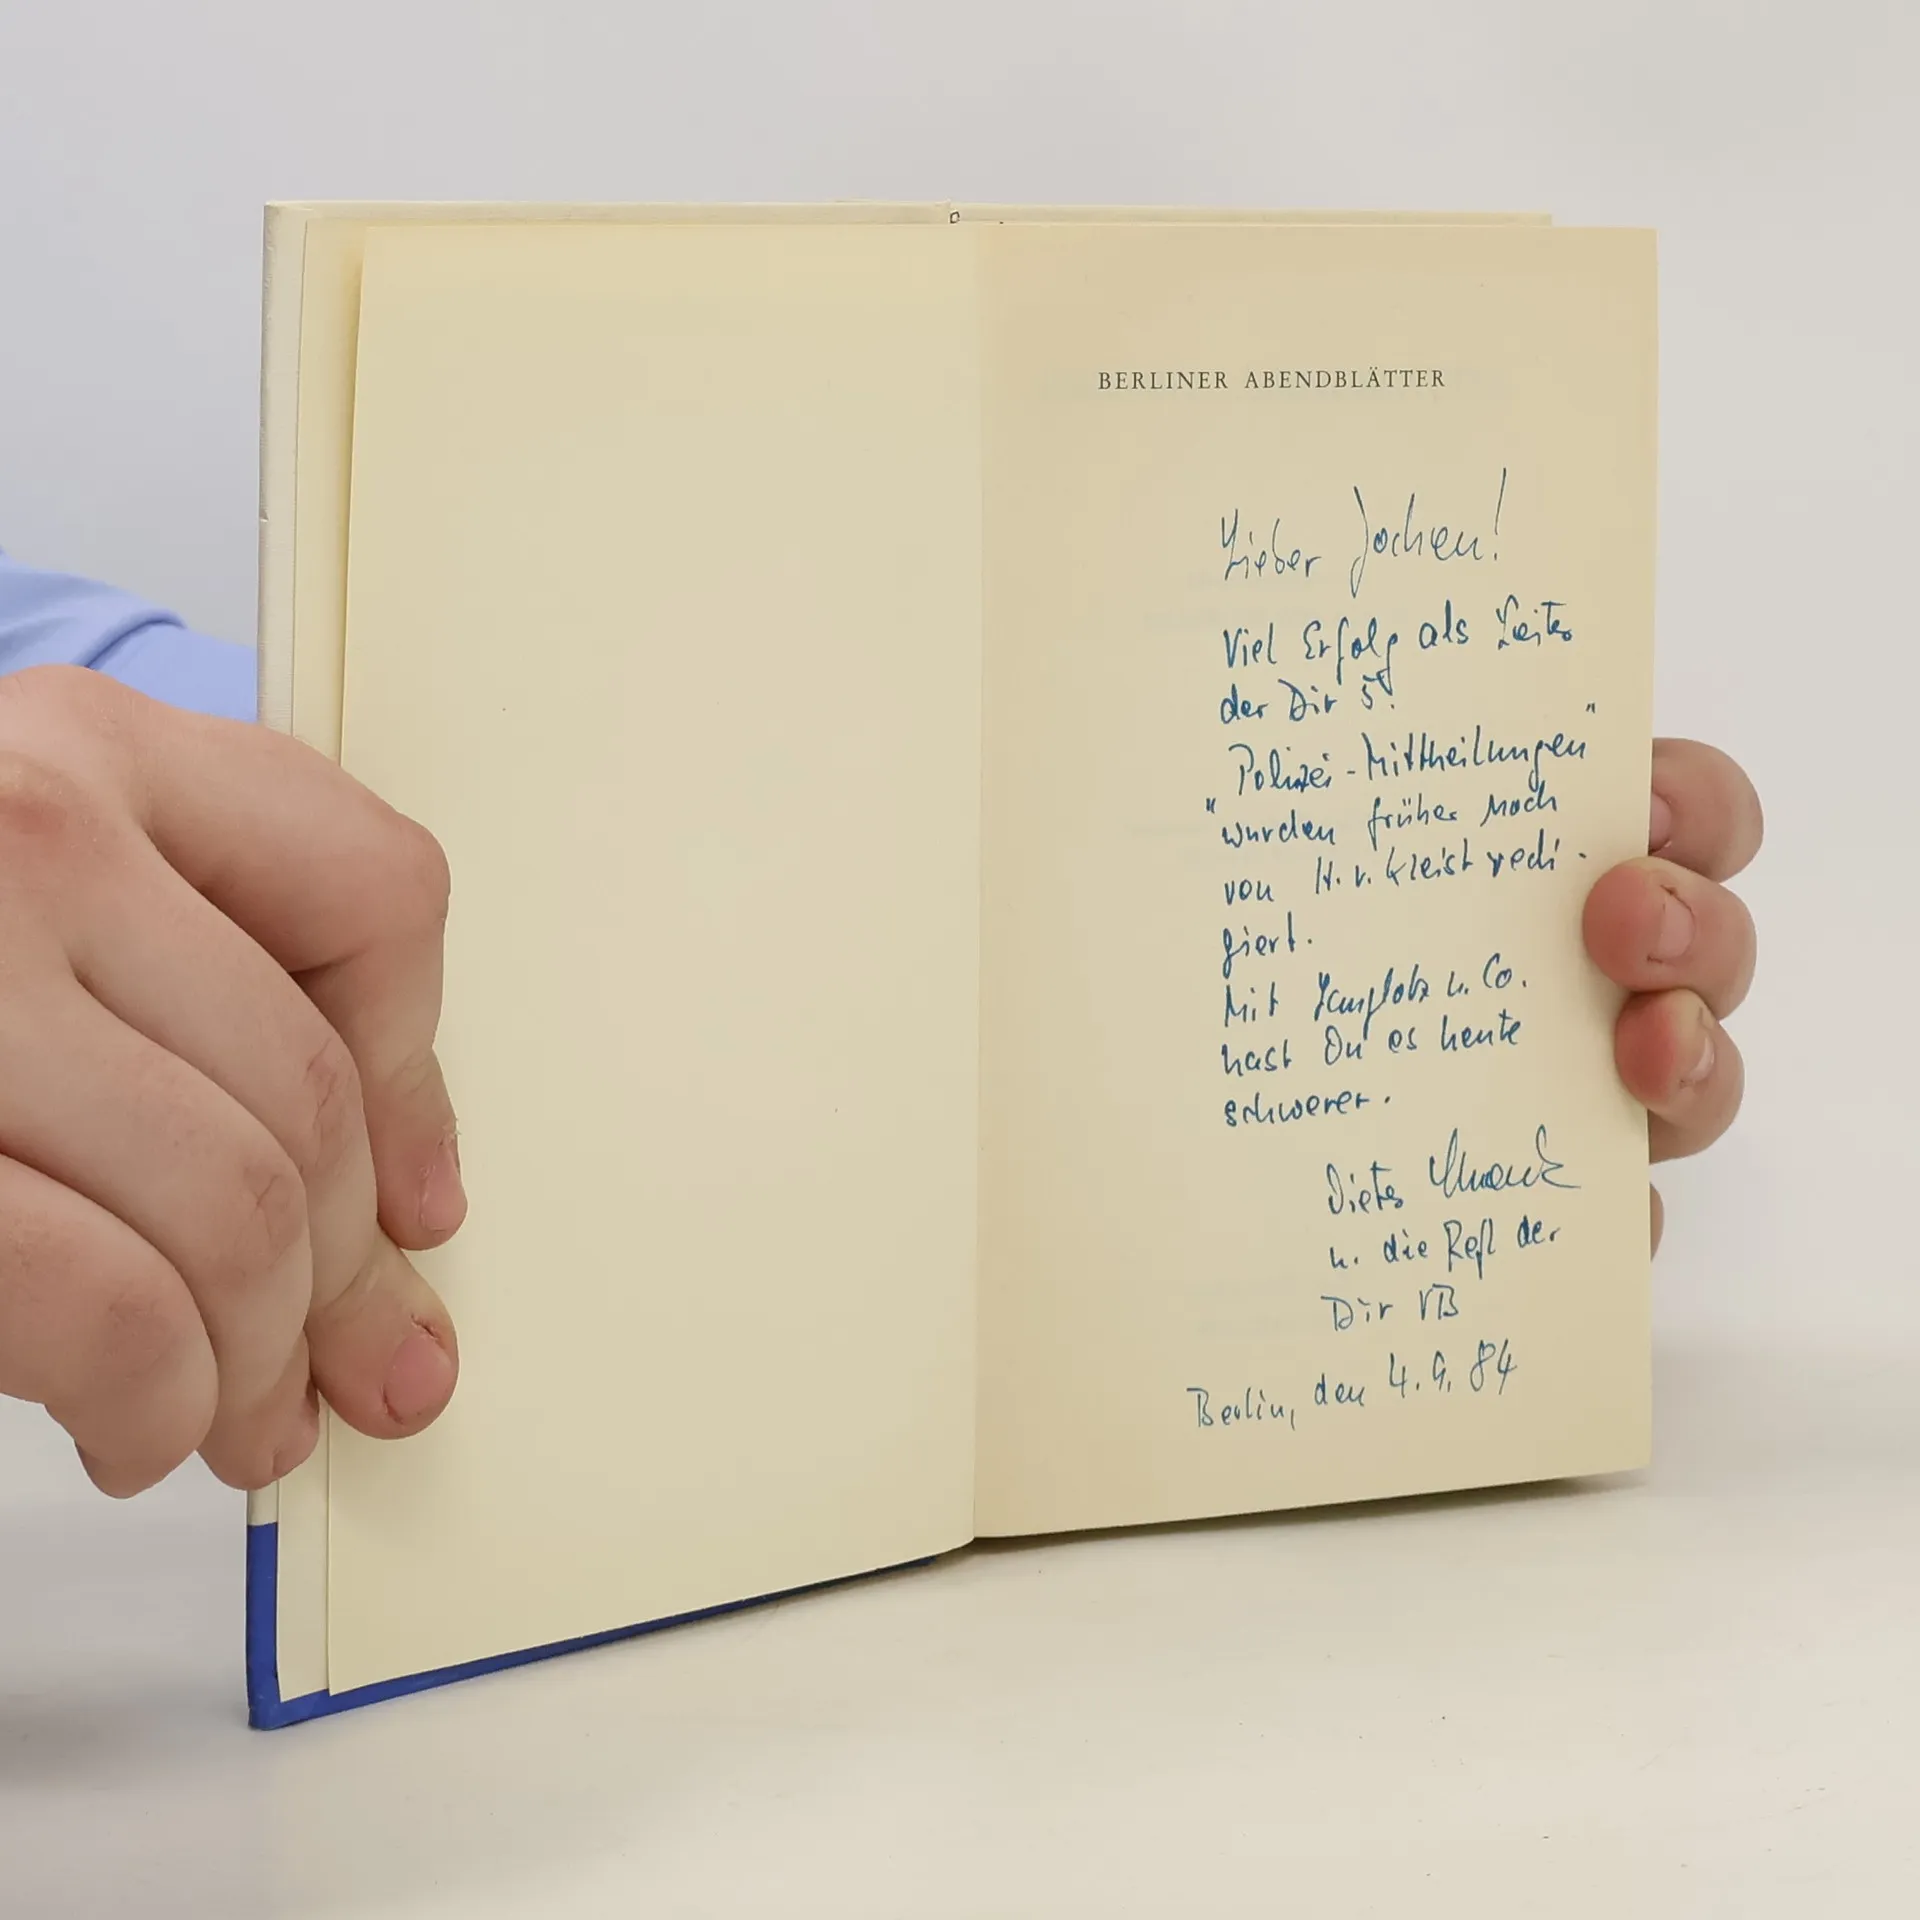 BERLINER ABENDBLÄTTER
Lieber Jochen!
Viel Erfolg als Leiter
der Dir 5!
Polizei-Mittheilungen"
"wurden früher noch
von H. v. Kleist redi-
giert.
Mit u. Co.
hast Du es heute
schwerer.
Dieter
u. die Refl der
Dir VB
Berlin, den 4.9.84